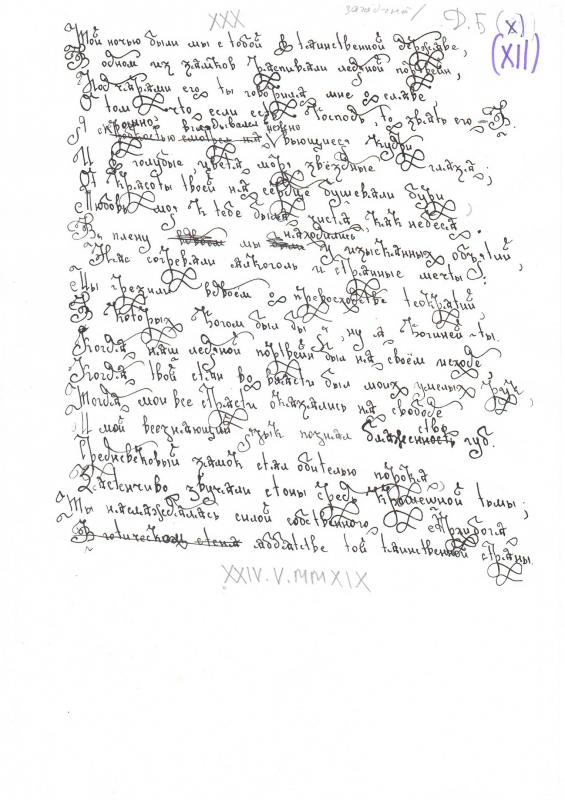 XXX
загадочной/ Д.Б (X)
(XII)
Той ночью были мы с тобой в таинственной державе,
В одном из замков распивали ледяной портвейн,
Под чарами его ты говорила мне о славе
О том что, если есть Господь, то звать его
Я скромно вглядывался нежно вьющиеся кудри
И в голубые, цвета моря звёздные глаза;
От красоты твоей на сердце бушевали бури
Любовь моя к тебе была чиста, как небеса.
В плену мы находились у изысканных объятий,
Нас согревали алкоголь и странные мечты;
Мы грезили вдвоём о превосходстве теократий,
В которых Богом был бы я, ну а Богиней - ты.
Когда наш ледяной портвейн был на своём исходе,
Когда твой стан во власти был моих умелых рук,
Тогда мои все страсти оказались на свободе
И мой всезнающий язык познал блаженство губ.
Средневековый замок стал обителью порока,
Застенчиво звучали стоны средь кромешной тьмы;
Ты наслаждалась силой собственного
В готическом аббатстве той таинственной страны.
XXIV.V.MMXIX